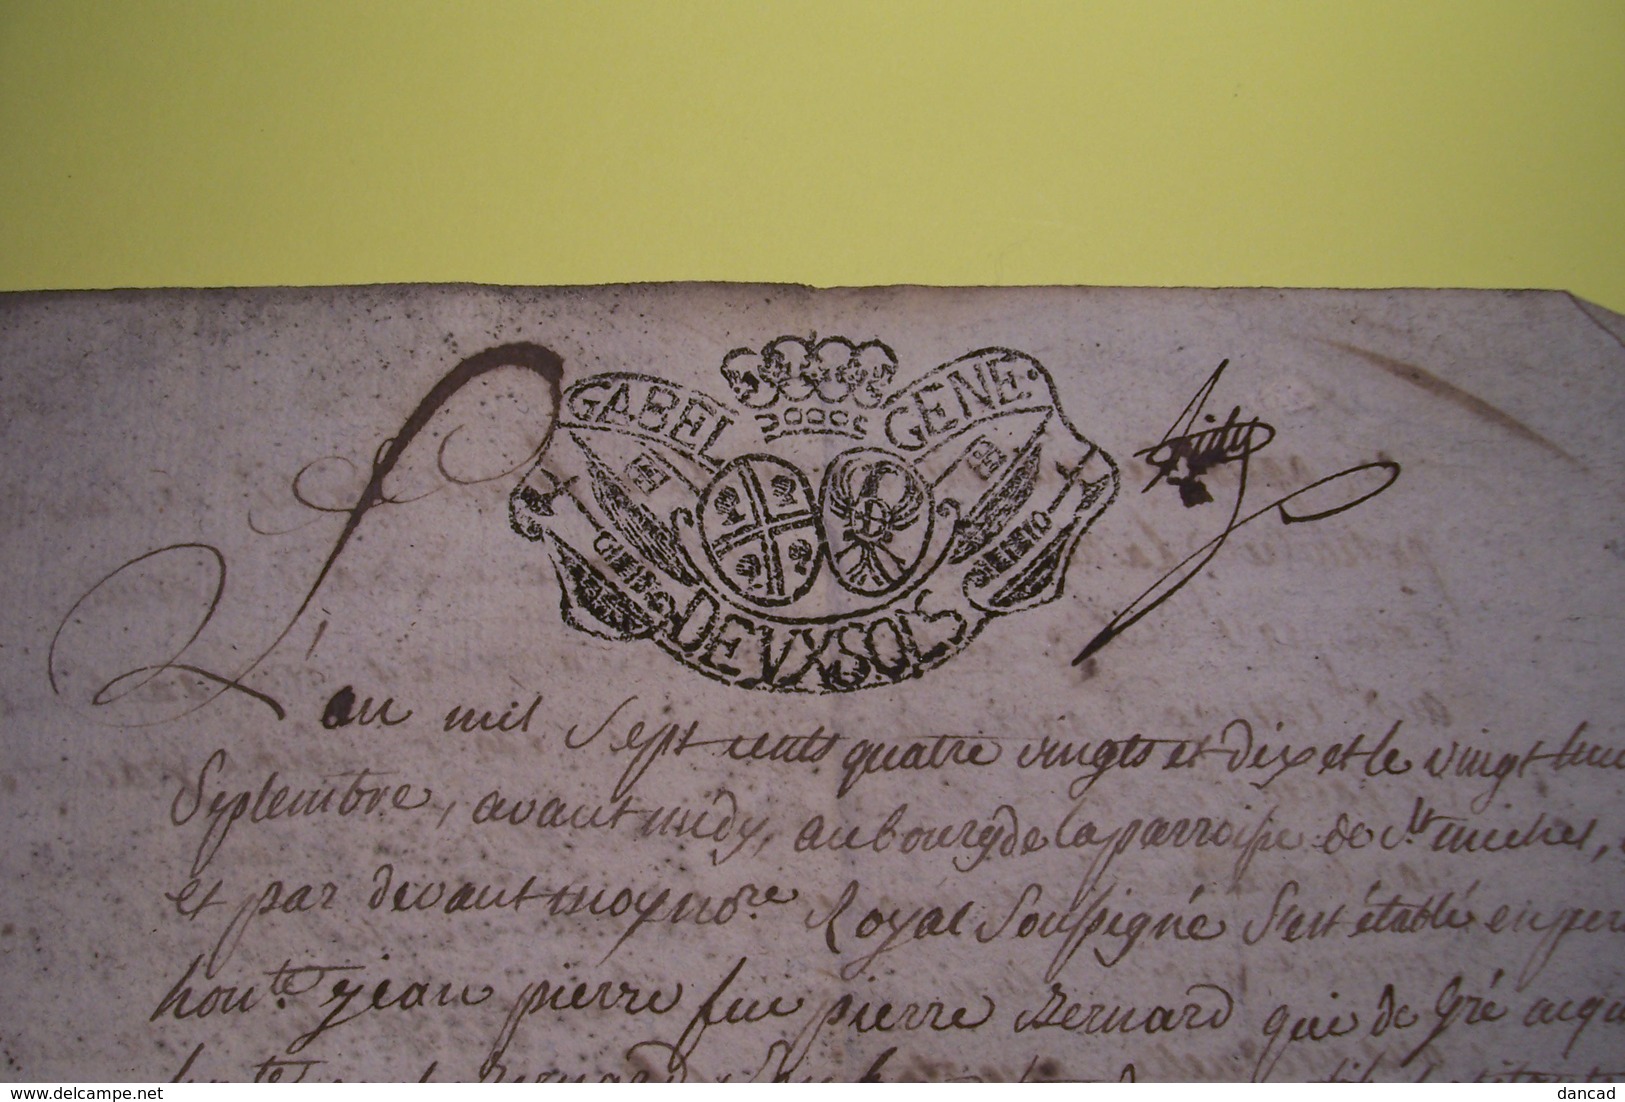 GABEL GENE.
DEVX SOLS
L'an mil sept cents quatre vingts et dix et le vingt huit
Septembre, avant midy, au bourg de la parroisse de St. michel,
et par devant moy nore. Royal Soussigné S'est établi en per
honte. jean pierre feu pierre Bernard qui de gré
Bernard
www.delcampe.net
dancad